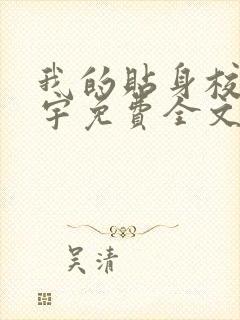 我的贴身校
宇免費全文
吴清